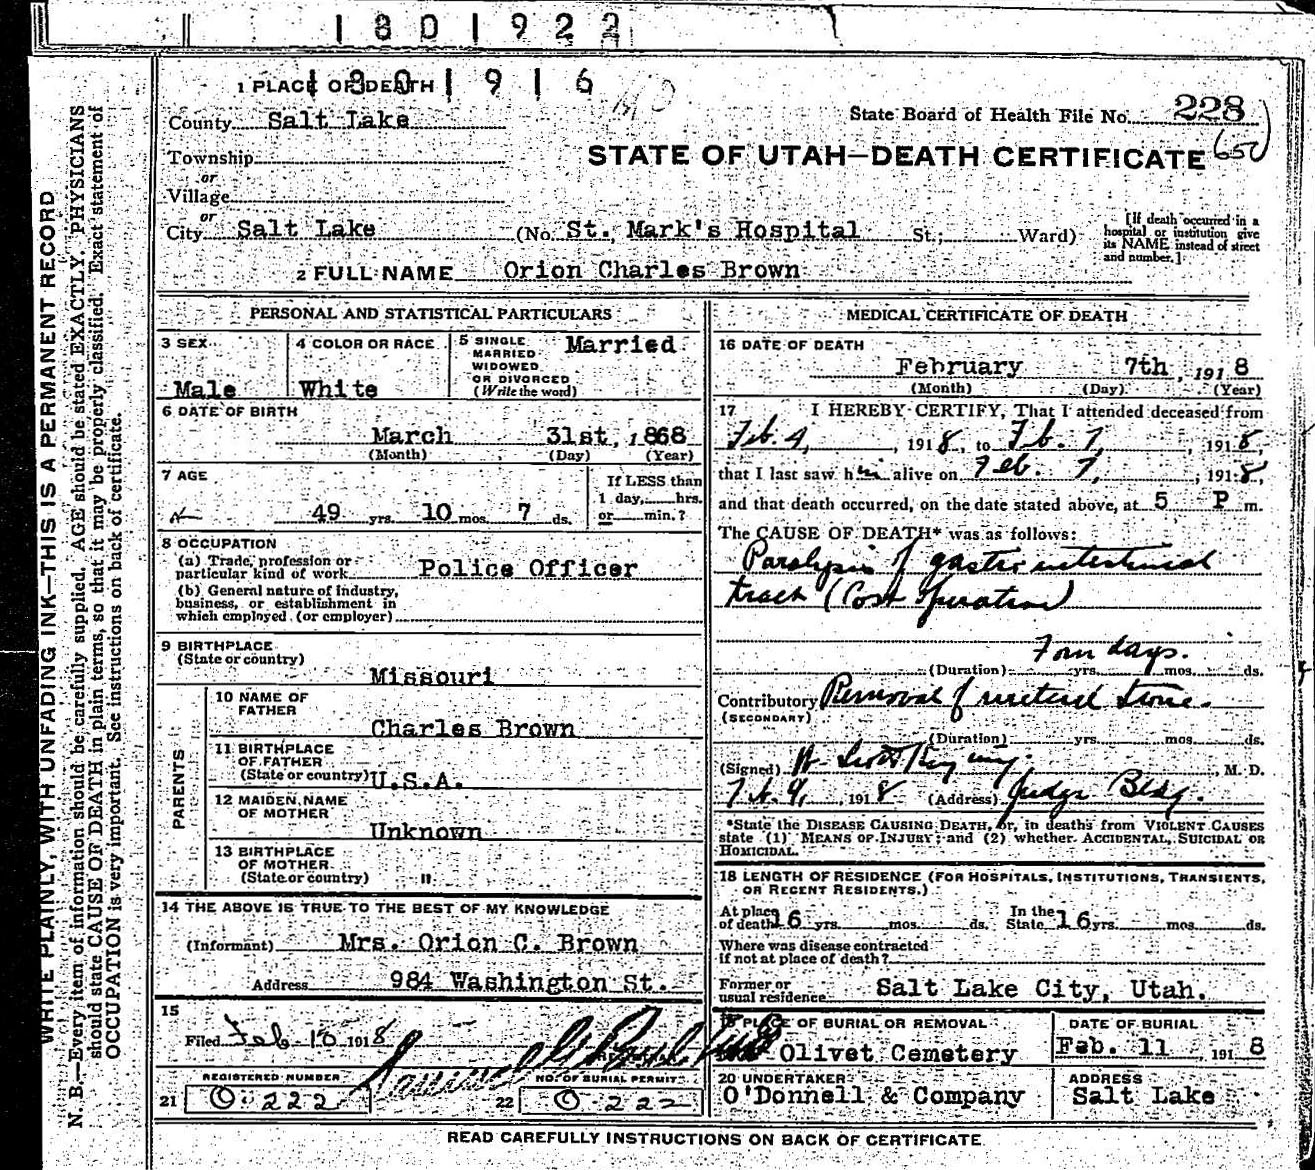 1801922
1801916
1 PLACE OF DEATH
State Board of Health File No. 228
650
County Salt Lake
STATE OF UTAH—DEATH CERTIFICATE
Township
or
Village
or
City Salt Lake (No. St. Mark's Hospital St.; Ward)
[If death occurred in a hospital or institution give its NAME instead of street and number.]
2 FULL NAME Orion Charles Brown
PERSONAL AND STATISTICAL PARTICULARS
3 SEX
Male
4 COLOR OR RACE
White
5 SINGLE
MARRIED
WIDOWED
OR DIVORCED
(Write the word)
Married
6 DATE OF BIRTH
March 31st, 1868
(Month) (Day) (Year)
7 AGE
49 yrs. 10 mos. 7 ds.
If LESS than
1 day, hrs.
or min.?
8 OCCUPATION
(a) Trade, profession or
particular kind of work Police Officer
(b) General nature of Industry,
business, or establishment in
which employed (or employer)
9 BIRTHPLACE
(State or country)
Missouri
PARENTS
10 NAME OF
FATHER
Charles Brown
11 BIRTHPLACE
OF FATHER
(State or country) U.S.A.
12 MAIDEN NAME
OF MOTHER
Unknown
13 BIRTHPLACE
OF MOTHER
(State or country) "
14 THE ABOVE IS TRUE TO THE BEST OF MY KNOWLEDGE
(Informant) Mrs. Orion C. Brown
Address 984 Washington St.
15
Filed Feb 1918
REGISTERED NUMBER
21 0.222
NO. OF BURIAL PERMIT
22 0 222
MEDICAL CERTIFICATE OF DEATH
16 DATE OF DEATH
February 7th, 1918
(Month) (Day) (Year)
17 I HEREBY CERTIFY, That I attended deceased from
Feb. 4, 1918, to Feb. 7, 1918,
that I last saw him alive on Feb. 7, 1918,
and that death occurred, on the date stated above, at 5 P m.
The CAUSE OF DEATH* was as follows:
Paralysis of gastro intestinal
tract (Post operation)
Four days.
(Duration) yrs. mos. ds.
Contributory Removal of ureteral stone.
(SECONDARY)
(Duration) yrs. mos. ds.
(Signed) , M. D.
Feb. 9, 1918 (Address) Judge Bldg.
*State the DISEASE CAUSING DEATH, or, in deaths from VIOLENT CAUSES
state (1) MEANS OF INJURY; and (2) whether ACCIDENTAL, SUICIDAL OR
HOMICIDAL.
18 LENGTH OF RESIDENCE (FOR HOSPITALS, INSTITUTIONS, TRANSIENTS,
OR RECENT RESIDENTS.)
At place
of death 16 yrs. mos. ds. In the
State 16 yrs. mos. ds.
Where was disease contracted
if not at place of death?
Former or
usual residence Salt Lake City, Utah.
PLACE OF BURIAL OR REMOVAL
Olivet Cemetery
DATE OF BURIAL
Feb. 11 1918
20 UNDERTAKER
O'Donnell & Company
ADDRESS
Salt Lake
READ CAREFULLY INSTRUCTIONS ON BACK OF CERTIFICATE
WRITE PLAINLY, WITH UNFADING INK—THIS IS A PERMANENT RECORD
N. B.—Every item of information should be carefully supplied. AGE should be stated EXACTLY. PHYSICIANS
should state CAUSE OF DEATH in plain terms, so that it may be properly classified. Exact statement of
OCCUPATION is very important. See instructions on back of certificate.